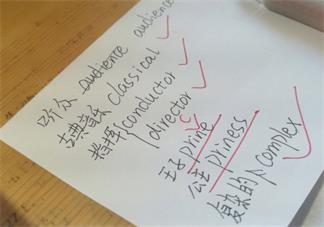 听众 audience audience
古典音乐 classical
指挥 conductor
director
王子 prine
c
公主 priness
复杂的 complex